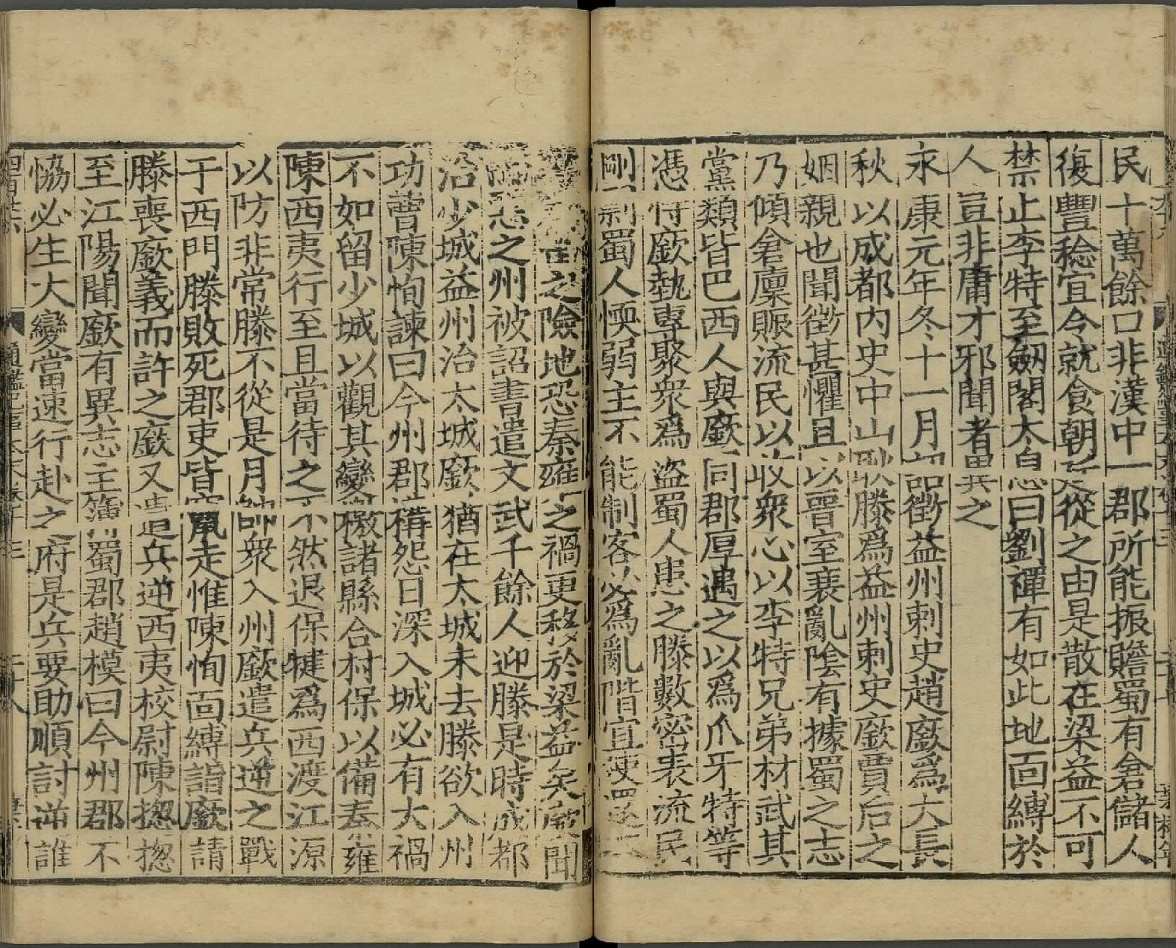 民十萬餘口非漢中一郡所能振贍蜀有倉儲人
復豐稔宜令就食朝廷從之由是散在梁益不可
禁止李特至劒閣太息曰劉禪有如此地面縛於
人豈非庸才邪聞者異之
永康元年冬十一月詔徵益州刺史趙廞爲大長
秋以成都內史中山耿滕爲益州刺史廞賈后之
姻親也聞徵甚懼且以晉室衰亂陰有據蜀之志
乃傾倉廩賑流民以收衆心以李特兄弟材武其
黨類皆巴西人與廞同郡厚遇之以爲爪牙特等
憑恃廞埶專聚衆爲盜蜀人患之滕數密表流民
剛剽蜀人愞弱主不能制客必爲亂階宜使還
之險地恐秦雍之禍更移於梁益矣廞聞
而惡之州被詔書遣文武千餘人迎滕是時成都
治少城益州治太城廞猶在太城未去滕欲入州
功曹陳恂諫曰今州郡構怨日深入城必有大禍
不如留少城以觀其變檄諸縣合村保以備秦雍
陳西夷行至且當待之不然退保犍爲西渡江源
以防非常滕不從是月帥衆入州廞遣兵逆之戰
于西門滕敗死郡吏皆竄走惟陳恂面縛詣廞請
滕喪廞義而許之廞又遣兵逆西夷校尉陳摠摠
至江陽聞廞有異志主簿蜀郡趙模曰今州郡不
協必生大變當速行赴之府是兵要助順討逆誰